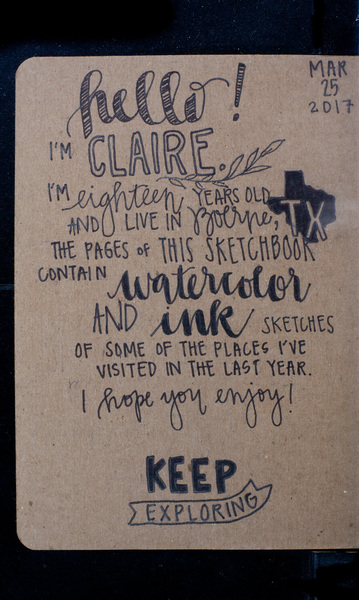 MAR
25
2017
hello!
I'M CLAIRE.
I'M eighteen YEARS OLD
AND I LIVE IN Boerne, TX
THE PAGES OF THIS SKETCHBOOK
CONTAIN watercolor
AND ink SKETCHES
OF SOME OF THE PLACES I'VE
VISITED IN THE LAST YEAR.
I hope you enjoy!
KEEP
EXPLORING